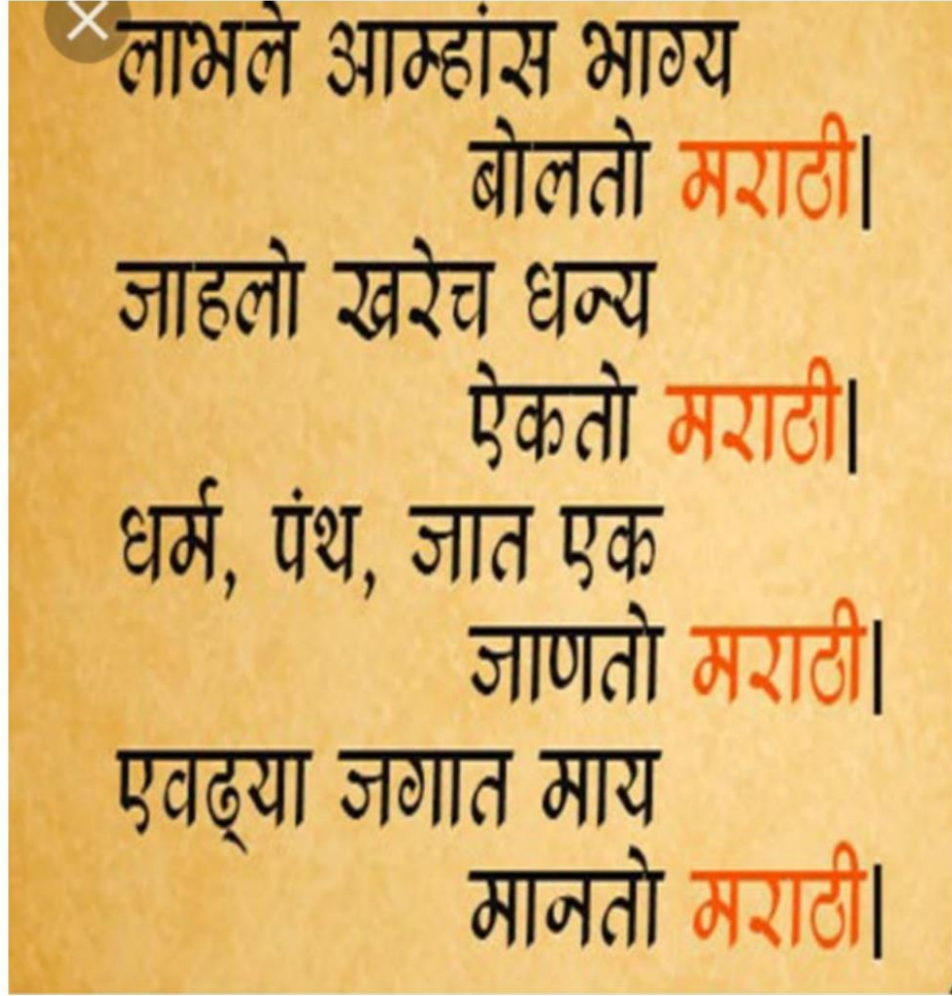 लाभले आम्हांस भाग्य
बोलतो मराठी|
जाहलो खरेच धन्य
ऐकतो मराठी|
धर्म, पंथ, जात एक
जाणतो मराठी|
एवढ्या जगात माय
मानतो मराठी|